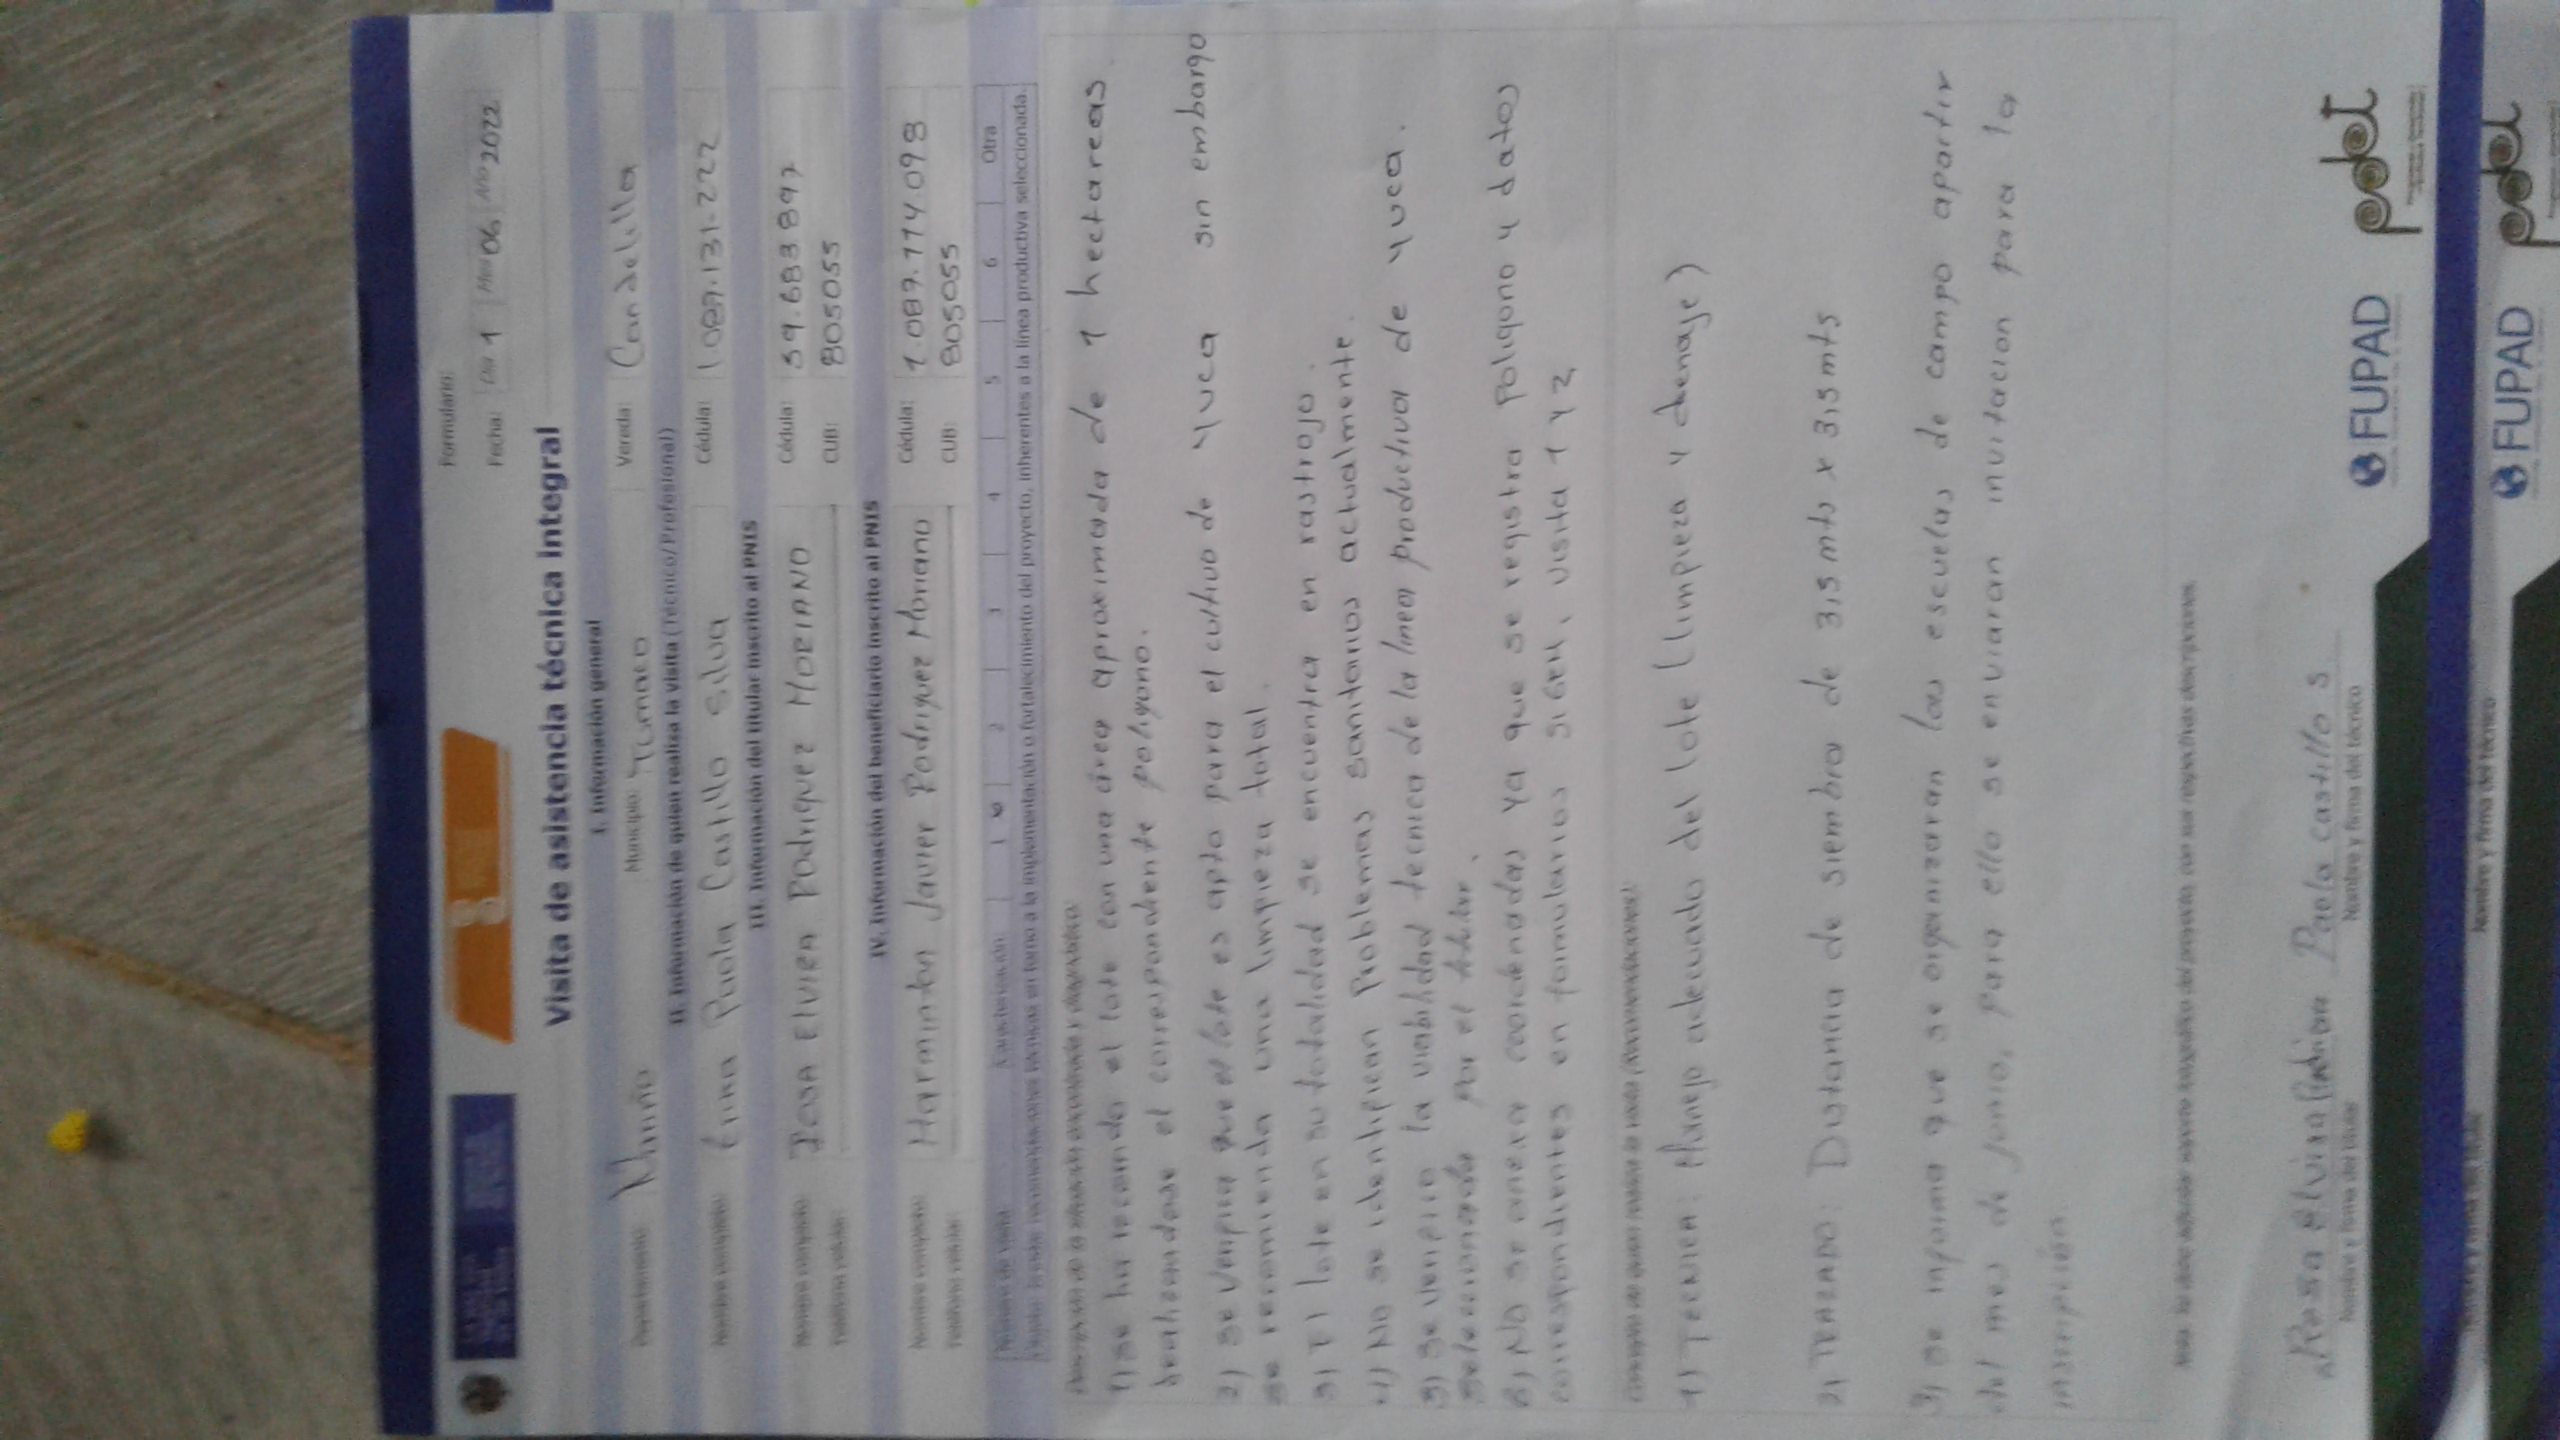 Formulario:
Fecha: Día 1 Mes 06 Año 2022
Visita de asistencia técnica integral
I. Información general
Departamento: Nariño Municipio: Tumaco Vereda: Candelilla
II. Información de quien realiza la visita (Técnico/Profesional)
Nombre completo: Paola Castillo Silva Cédula: 1.089.131.222
III. Información del titular inscrito al PNIS
Nombre completo: ROSA ELVIRA Rodriguez MORIANO Cédula: 59.683897
Teléfono celular: CUB: 805055
IV. Información del beneficiario inscrito al PNIS
Nombre completo: Harminton Javier Rodriguez Moriano Cédula: 1.087.114.098
Teléfono celular: CUB: 805055
Número de visita Caracterización 1 2 3 4 5 6 Otra
técnicas en torno a la implementación o fortalecimiento del proyecto, inherentes a la línea productiva seleccionada.
1) se ha recorrido el lote con una área aproximada de 1 hectareas
el correspondiente poligono.
2) se verifica que el lote es apto para el cultivo de yuca sin embargo
se recomienda una limpieza total.
3) El lote en su totalidad se encuentra en rastrojo.
4) No se identifican Problemas sanitarios actualmente.
5) Se verifico la viabilidad tecnica de la linea productiva de yuca.
seleccionada por el titular.
6) NO se anexa coordenadas ya que se registra Poligono y datos
correspondientes en formularios SIGEN, visita 1 y 2
1) TERNIEN: Manejo adecuado del lote (limpieza y drenaje)
2) TRAZADO: Distancia de siembra de 3,5 mts x 3,5 mts
3) se informa que se organizaran las escuelas de campo apartir
del mes de junio, para ello se enviaran invitacion para la
inscripción.
Rosa Elvira Paola castillo S
Nombre y firma del titular Nombre y firma del técnico
FUPAD pdet
Nombre y firma del técnico
FUPAD pdet